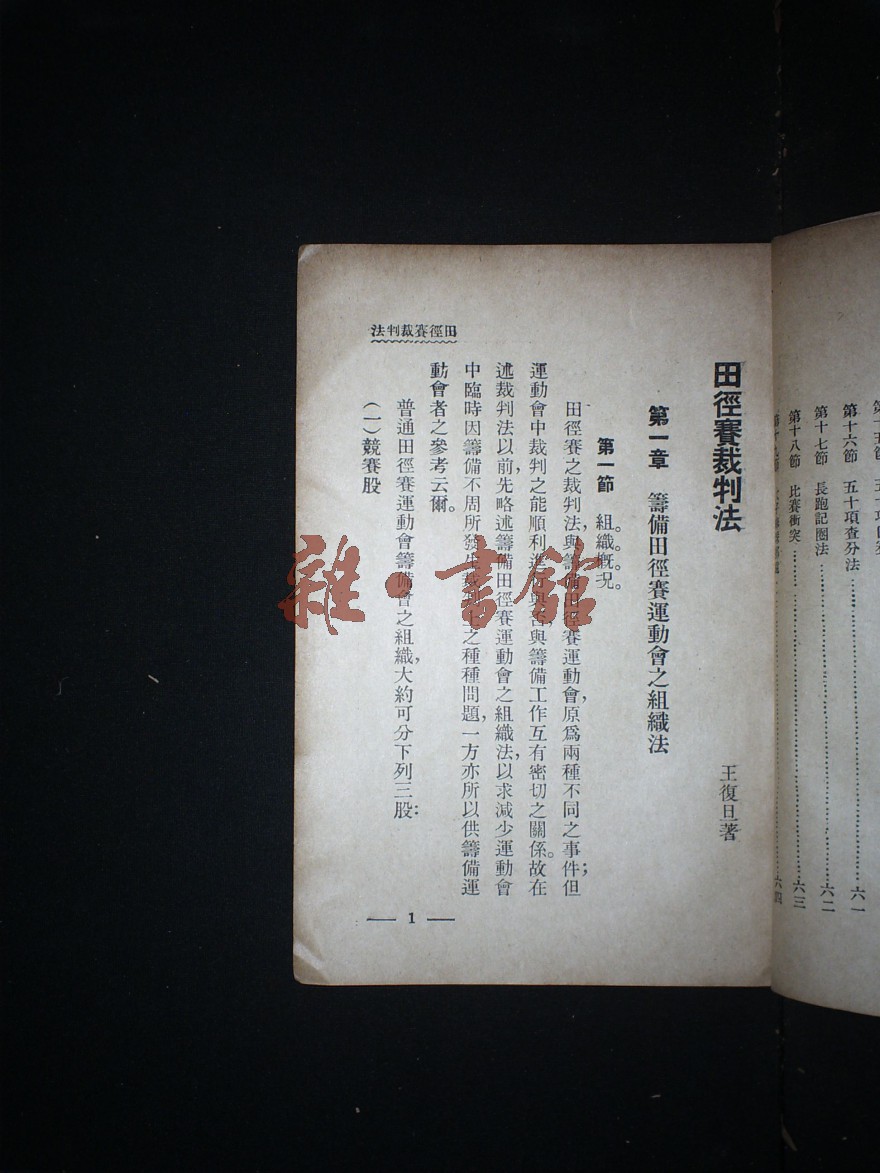 第十六節 五十項查分法……六一
第十七節 長跑記圈法……六二
第十八節 比賽衝突……六三
田徑賽裁判法
王復旦著
第一章 籌備田徑賽運動會之組織法
第一節 組織概況。
田徑賽之裁判法,與籌備田徑賽運動會,原爲兩種不同之事件;但
運動會中裁判之能順利進行與否與籌備工作互有密切之關係。故在
述裁判法以前,先略述籌備田徑賽運動會之組織法,以求減少運動會
中臨時因籌備不周所發生裁判上之種種問題,一方亦所以供籌備運
動會者之參考云爾。
普通田徑賽運動會籌備會之組織,大約可分下列三股:
(一)競賽股
田徑賽裁判法
— 1 —
雜·書館